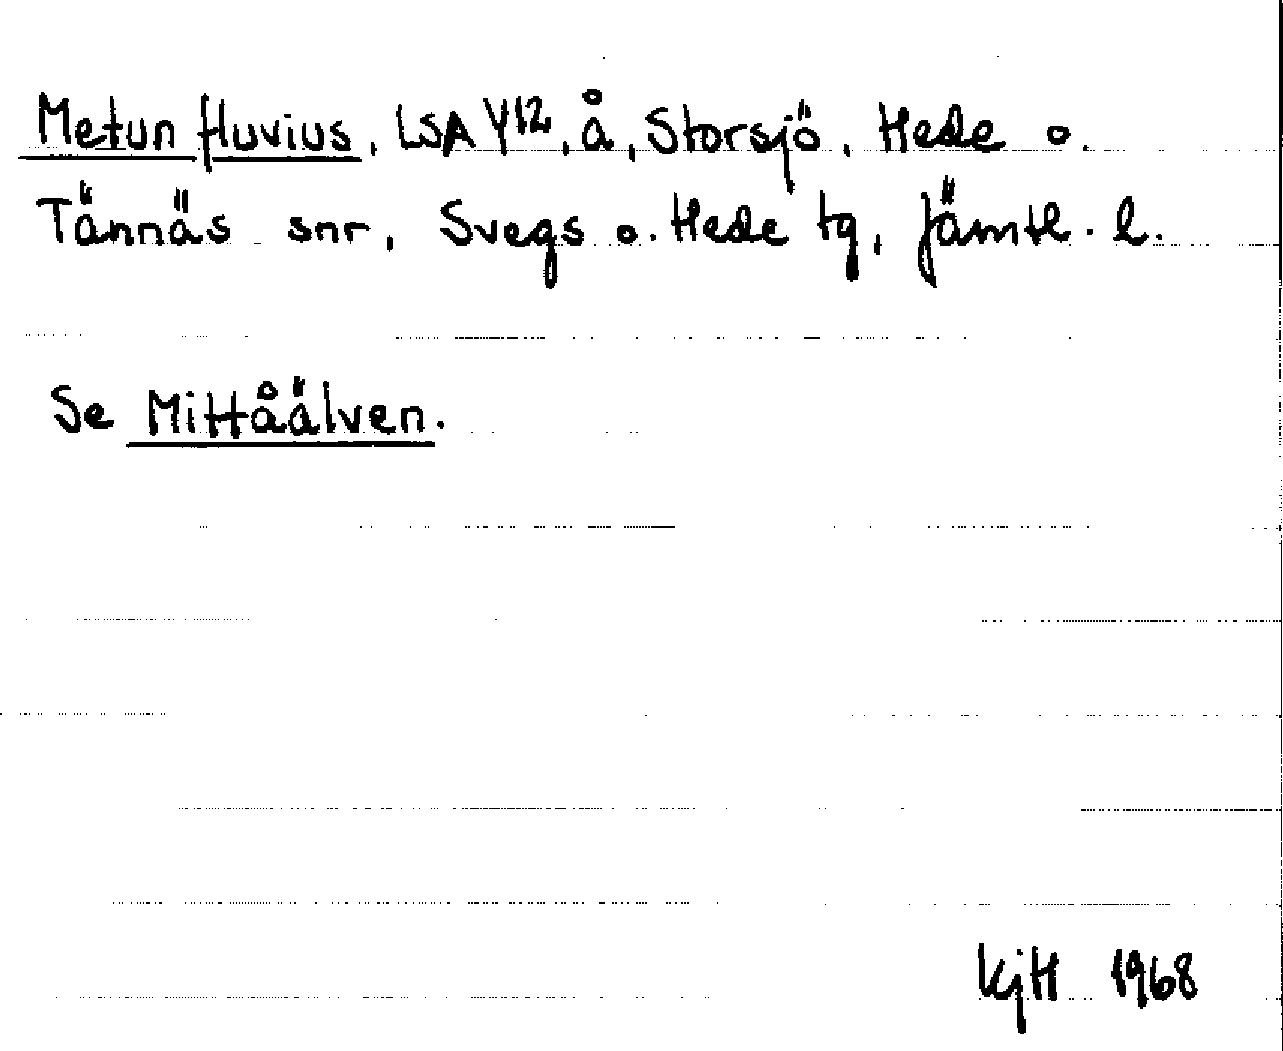 Metun fluvius, LSA Y12, å, Storsjö, Hede o.
Tännäs snr, Svegs o. Hede tg, Jämtl. l.
Se Mittåälven.
KjH 1968